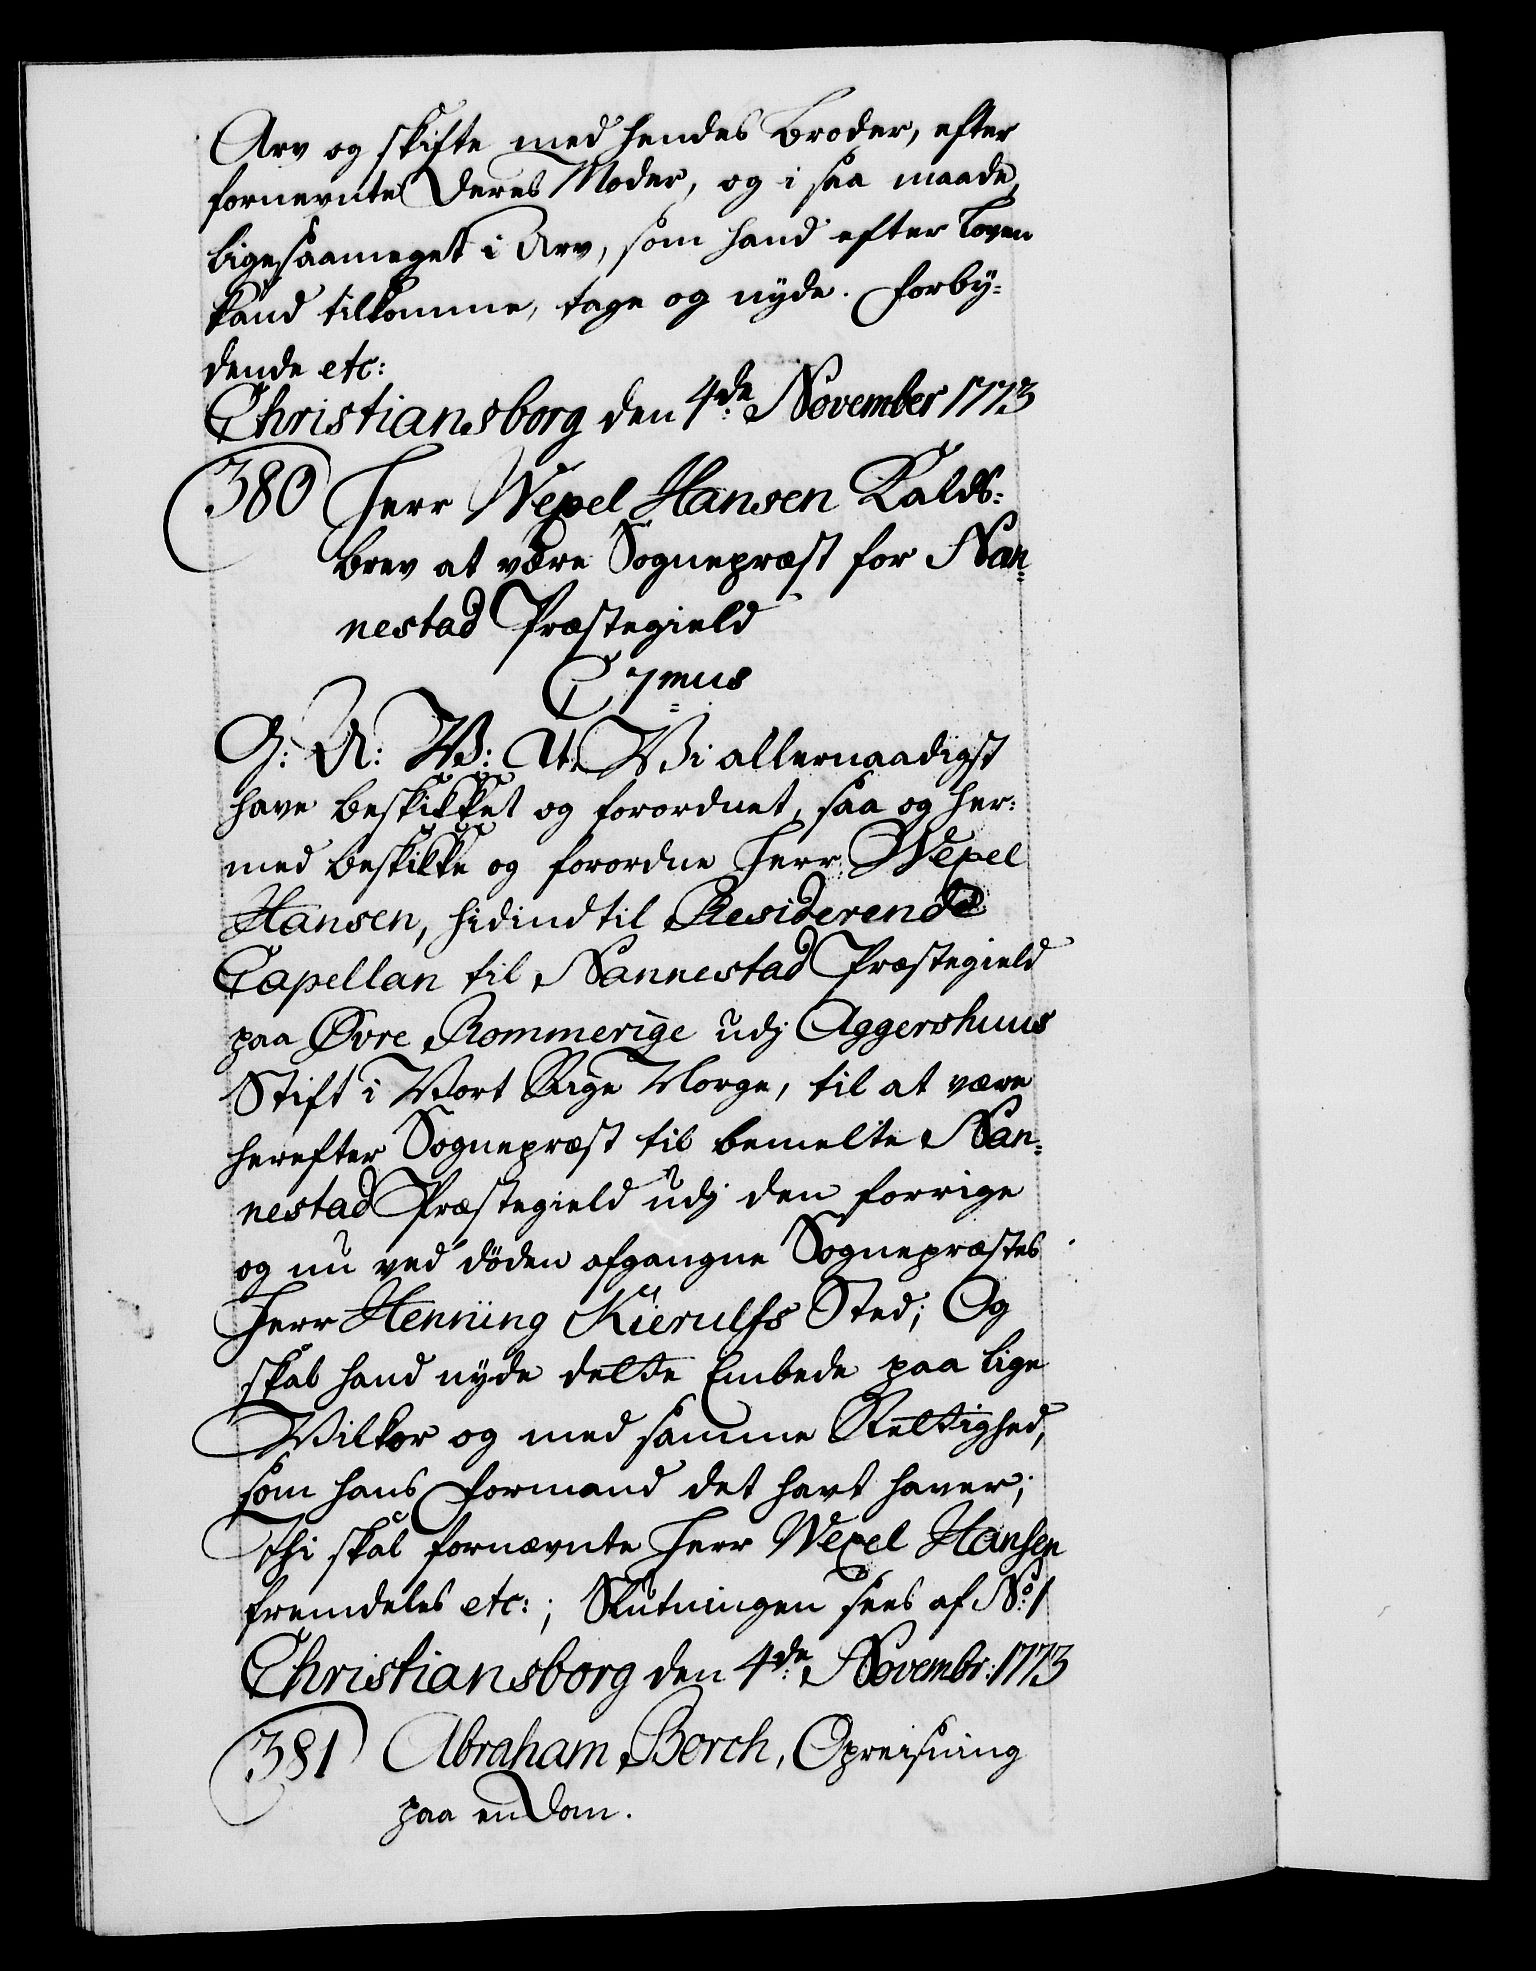 Arv og skifte med hendes Broder, efter
fornevnte Deres Moder, og i saa maade
ligesaameget i Arv, som hand efter Loven
kand tilkomme, tage og nyde. Forby-
dende etc:
Christiansborg den 4de November 1773
380 Herr Wexel Hansen Kalds-
brev at være Sognepræst for Nan-
nestad Præstegield
C 7mus
G: A: W: At Wi allernaadigst
have beskikket og forordnet, saa og her-
med beskikke og forordne Herr Wexel
Hansen, hidindtil Residerende
Capellan til Nannestad Præstegield
paa Øvre Rommerige udj Aggershuus
Stift i Vort Rige Norge, til at være
herefter Sognepræst til bemelte Nan-
nestad Præstegield udj den forrige
og nu ved döden afgangne Sognepræstes
Herr Henning Kierulfs Sted; Og
skal hand nyde dette Embede paa lige
Vilkor og med samme Rettighed,
som hans Formand det havt haver;
Thi skal fornævnte Herr Wexel Hansen
fremdeles etc:; Slutningen sees af No: 1
Christiansborg den 4de Novembr: 1773
381 Abraham Borch, Opreisning
paa en Dom.